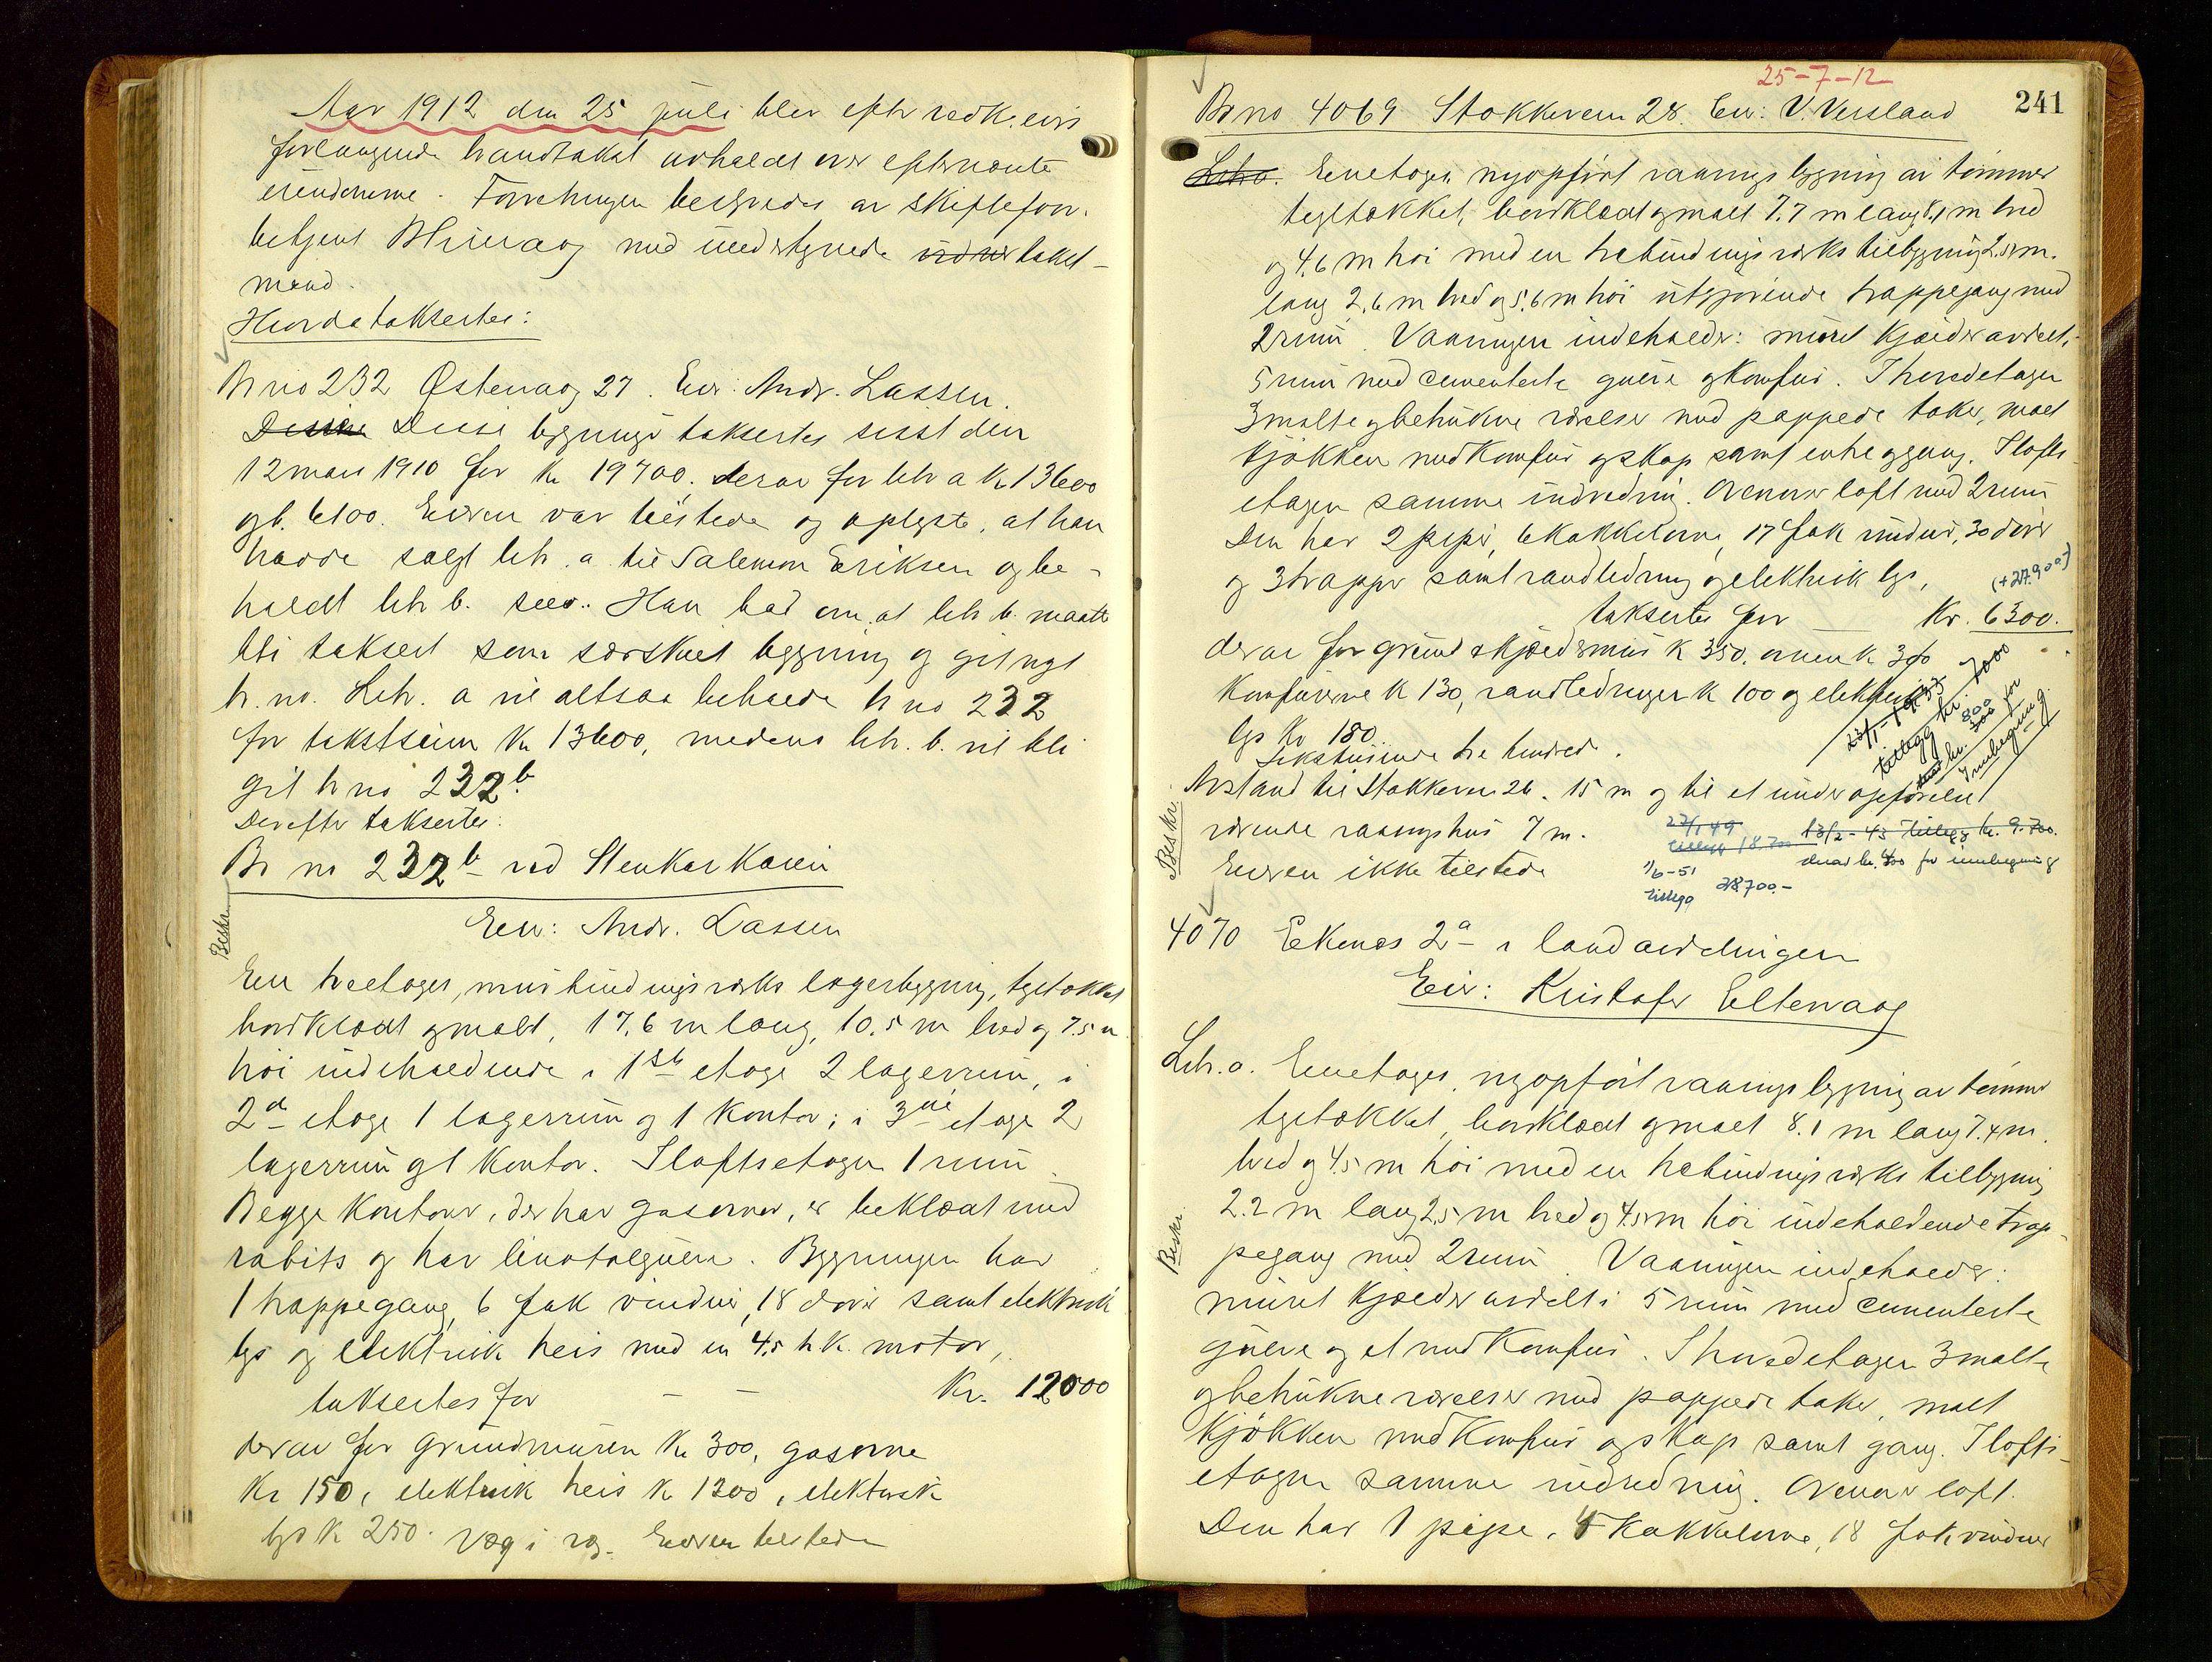 Aar 1912 den 25 juli blev efter vedk. eiers
forlangende brandtakst avholdt over efternævnte
eiendomme. Forretningen bestyredes av skiftefor.
betjent med undertegnede vidner takst-
mænd.
Hvorda taksertes:
Br no 232 Østervaag 27. Eier: Andr. Lassen.
Disse Disse bygninger taksertes sisst den
12 mars 1910 for Kr 19700. derav for litr a Kr 13600
og b. 6100. Eieren var tilstede og oplyste, at han
hadde solgt litr. a til Salemon Eriksen og be-
holdt litr b. selv. Han bad om at litr b. maatte
bli taksert som særskilt bygning og git nyt
br. no. Litr. a vil altsaa beholde br no 232
for takstsum Kr 13600, medens litr. b. vil bli
git br no 232 b
Derefter taksertes:
Br no 232 b ved Stenkarkaien
Eier: Andr. Lassen
Beskr.
En treetages, mur bindingsverks lagerbygning, tegltækket
bordklædt og malt, 17.6 m lang, 10.5 m bred og 7.5 m
höi indeholdende i 1ste etage 2 lagerrum, i
2d etage 1 lagerrum og 1 kontor; i 3die etage 2
lagerrum og 1 kontor. I loftsetagen 1 rum.
Begge kontorer, der har gasovner, er beklædt med
rabits og har linotolgulve. Bygningen har
1 trappegang, 6 fak vinduer, 18 dører samt elektrisk
lys og elektrisk heis med en 4.5 h.k. motor,
taksertes for — — Kr. 12000
derav for grundmuren Kr 300, gasovne
Kr 150, elektrisk heis Kr 1300, elektrisk
lys Kr 250. Væg i væg. Eieren tilstede
25-7-12
241
Br no 4069 Stokkeveien 28. Eier: V. Versland
Litr a. Enetages, nyopført vaaningsbygning av tømmer
tegltækket, bordklædt og malt 7.7 m lang 8.1 m bred
og 4.6 m höi med en trebindingsverks tilbygning 2.5 m.
lang 2.6 m bred og 5.6 m höi utgjørende trappegang med
2 rum. Vaaningen indeholder: muret kjælder avdelt i
5 rum med cementerte gulve og komfur. I hovedetagen
3 malte og betrukne værelser med pappede taker, malt
kjøkken med komfur og skap samt entre og gang. I lofts-
etagen samme indredning. Ovenover loft med 2 rum
Den har 2 piper, 6 kakkelovne, 17 fak vinduer, 30 dører
og 3 trapper samt vandledning og elektrisk lys,
(+27.900)
taksertes for — Kr. 6300.
derav for grund og kjældermur Kr 350. ovnen Kr 300
komfurerne Kr 130, vandledningen Kr 100 og elektrisk
lys Kr 180.
Sekstusinde tre hundrede.
23/1-1933
tillegg kr. 7000
derav kr. 300 800 for
innbygning.
Beskr.
Avstand til Stokkeveien 26. 15 m og til et under opförelse
værende vaaningshus 7 m.
Eieren ikke tilstede
27/1 49
tillegg 18.700
13/2-43 Tillegg kr. 9.700.
derav kr. 400 for innbygning
1/6-51
tillegg 28.700.-
4070 Ekenes 2a i landavdelingen
Eier: Kristofer Eltervaag
Litr. a. Enetages, nyopfört vaaningsbygning av tømmer
tegltækket, bordklædt og malt 8.1 m lang 7.4 m.
bred og 4.5 m höi med en trebindingsverks tilbygning
2.2 m lang 2.5 m bred og 4.5 m höi indeholdende trap-
Beskr.
pegang med 2 rum. Vaaningen indeholder:
muret kjælder avdelt i 5 rum med cementerte
gulve og et med komfur. I hovedetagen 3 malte
og betrukne værelser med pappede taker, malt
kjøkken med komfur og skap samt gang. I lofts-
etagen samme indredning. Ovenover loft.
Den har 1 pipe, 4 kakkelovne, 18 fak vinduer